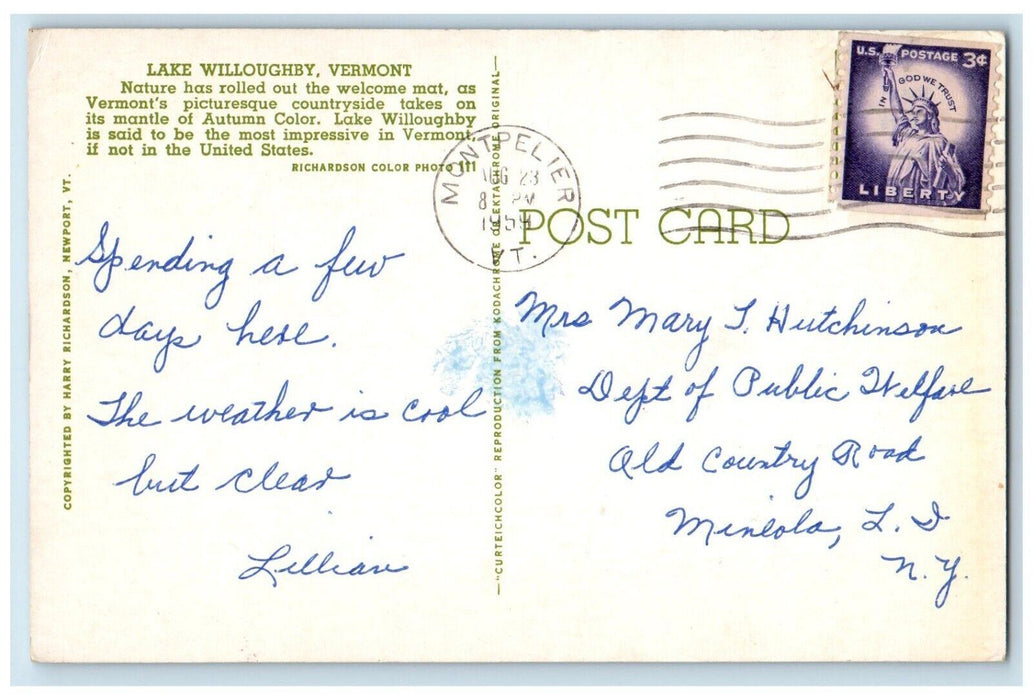 LAKE WILLOUGHBY, VERMONT
Nature has rolled out the welcome mat, as
Vermont's picturesque countryside takes on
its mantle of Autumn Color. Lake Willoughby
is said to be the most impressive in Vermont,
if not in the United States.
RICHARDSON COLOR PHOTO 111
COPYRIGHTED BY HARRY RICHARDSON, NEWPORT, VT.
Spending a few
days here.
The weather is cool
but clear
Lillian
—"CURTEICHCOLOR" REPRODUCTION FROM KODACHROME OR EKTACHROME ORIGINAL—
MONTPELIER
AUG 23
8 PM
1959
VT.
U.S. POSTAGE 3¢
IN GOD WE TRUST
LIBERTY
POST CARD
Mrs Mary T. Hutchinson
Dept of Public Welfare
Old Country Road
Mineola, L. I
N. Y.